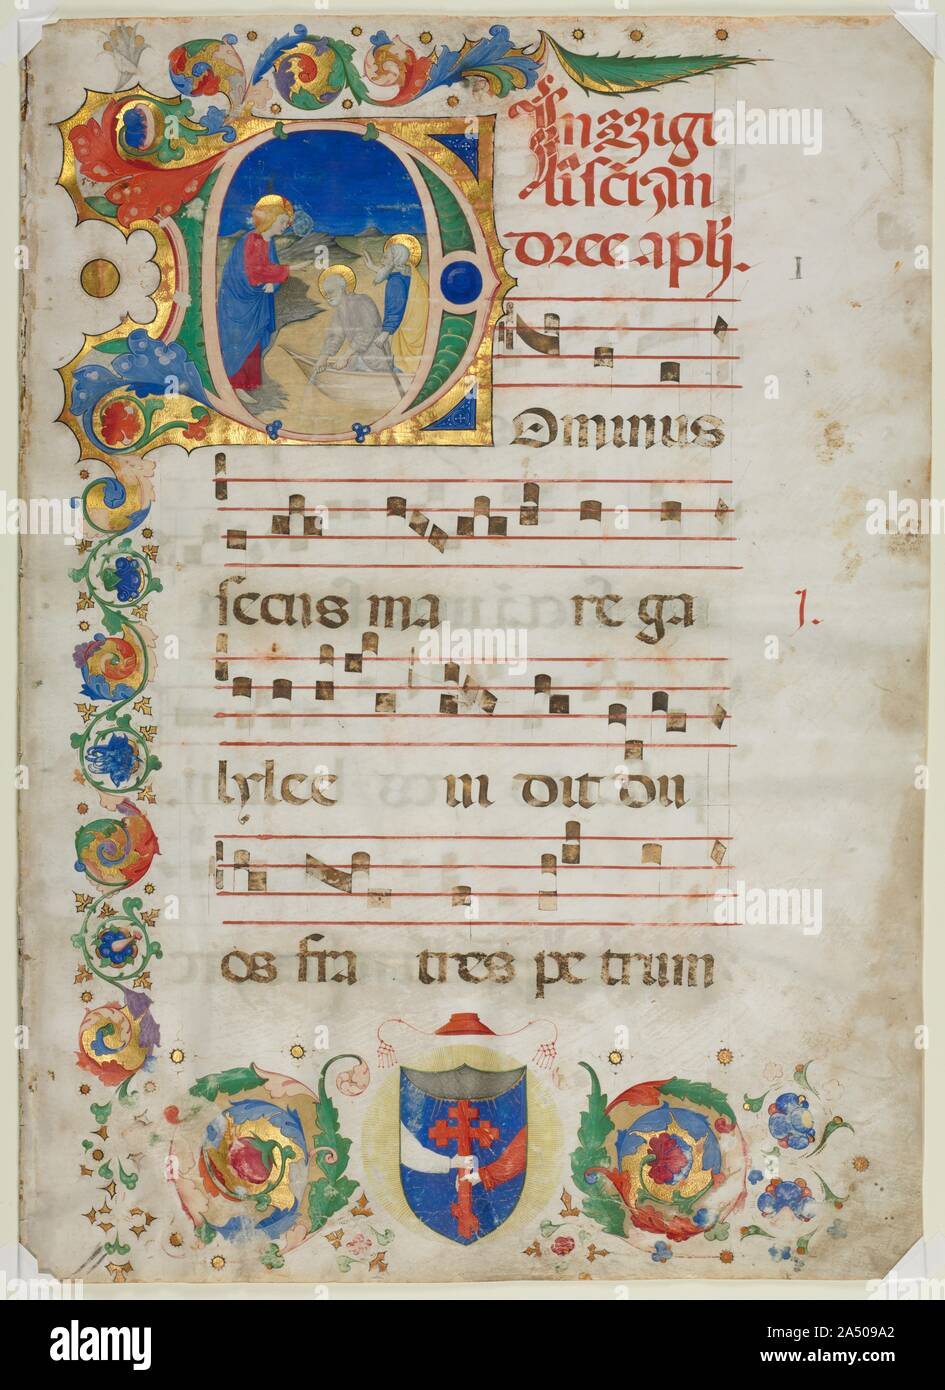 In vigi
lia sci An
dree apli.
I
Ominus
secus ma re ga
1.
lylee vi dit du
os fra tres pe trum
alamy
Image ID: 2A509A2
www.alamy.com